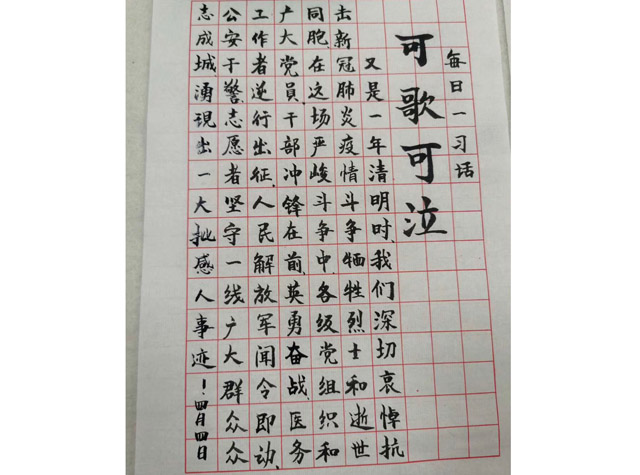 每日一习话
可歌可泣
又是一年清明时,我们深切哀悼抗
击新冠肺炎疫情斗争牺牲烈士和逝世
同胞,在这场严峻斗争中,各级党组织和
广大党員、干部冲锋在前,英勇奋战,医务
工作者逆行出征,人民解放军闻令即动,
公安干警、志愿者坚守一线广大群众众
志成城湧現出一大批感人事迹！四月四日